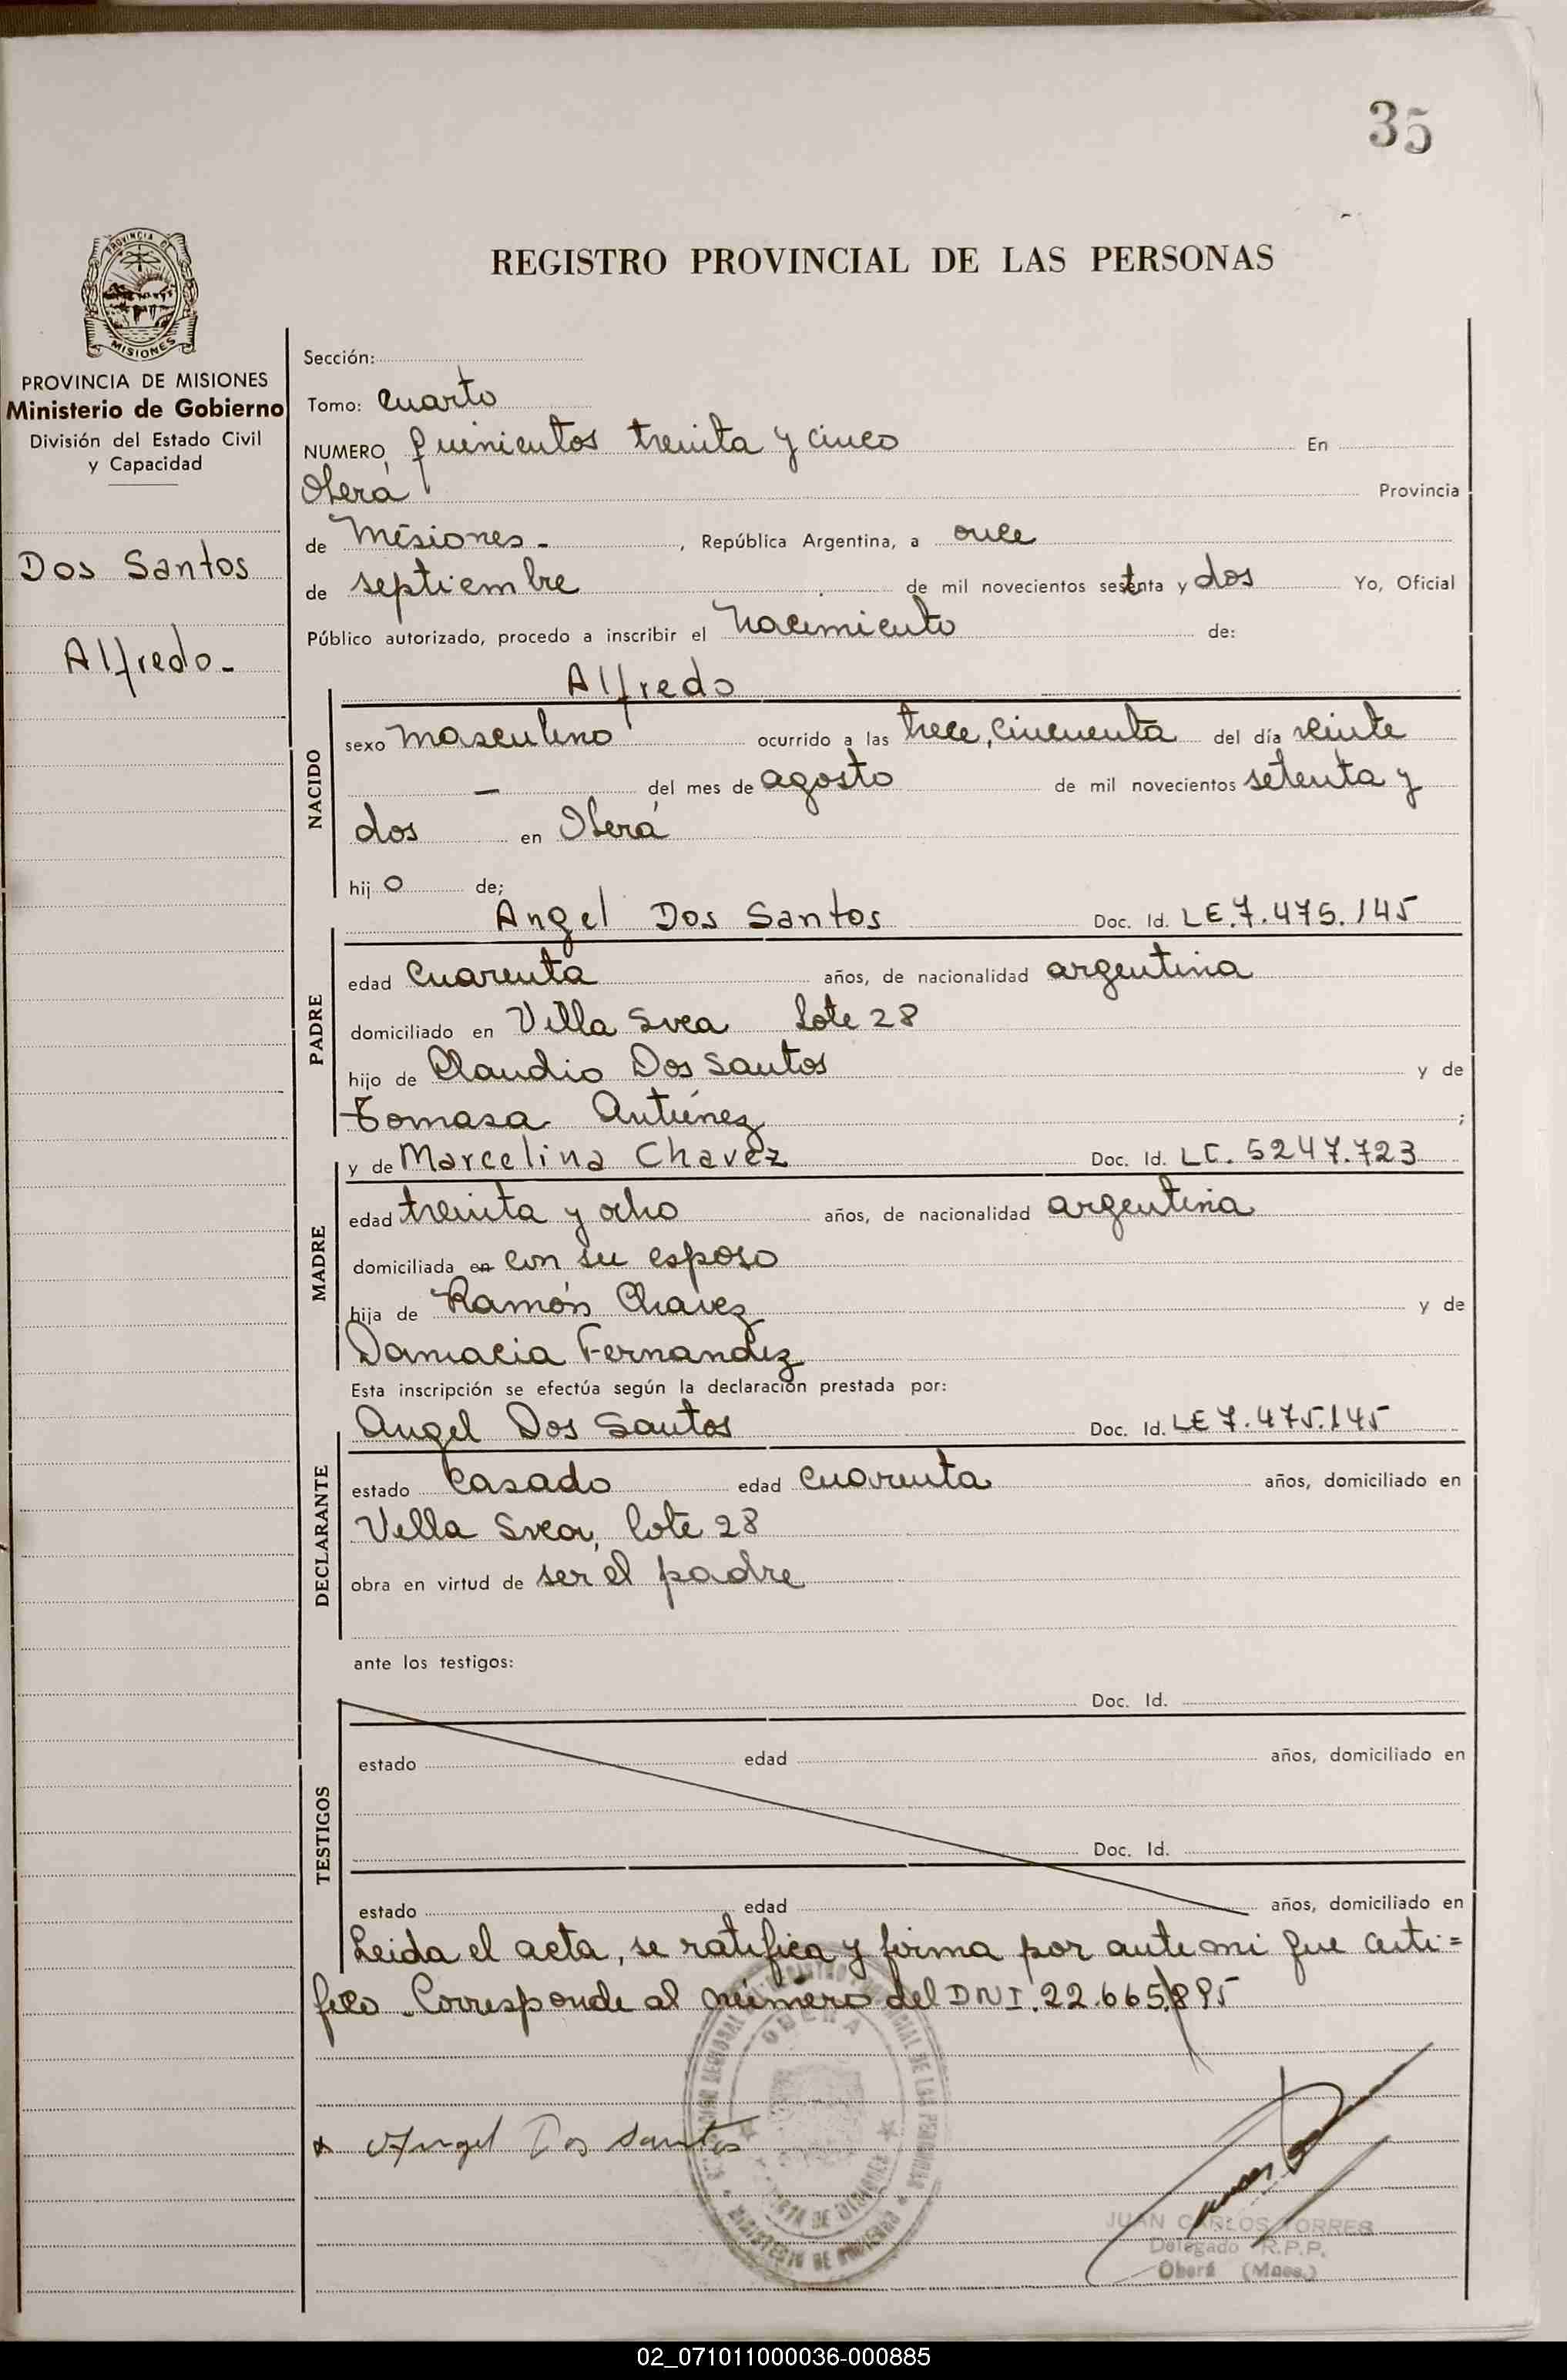 35
REGISTRO PROVINCIAL DE LAS PERSONAS
PROVINCIA DE
MISIONES
PROVINCIA DE MISIONES
Ministerio de Gobierno
División del Estado Civil
y Capacidad
Dos Santos
Alfredo-
Sección:
Tomo: Cuarto
NUMERO, quinientos treinta y cinco En
Oberá Provincia
de Misiones - , República Argentina, a once
de septiembre de mil novecientos setenta y dos Yo, Oficial
Público autorizado, procedo a inscribir el Nacimiento de:
Alfredo
NACIDO
sexo masculino ocurrido a las trece, cincuenta del día veinte
— del mes de agosto de mil novecientos setenta y
dos en Oberá
hijo de;
Angel Dos Santos Doc. Id. LE.7.475.145
PADRE
edad Cuarenta años, de nacionalidad argentina
domiciliado en Villa Svea Lote 28
hijo de Claudio Dos Santos y de
Tomasa Antúnez ;
y de Marcelina Chavez Doc. Id. LC. 5247.723
MADRE
edad treinta y ocho años, de nacionalidad argentina
domiciliada en con su esposo
hija de Ramón Chavez y de
Damacia Fernandez
Esta inscripción se efectúa según la declaración prestada por:
Angel Dos Santos Doc. Id. LE 7.475.145
DECLARANTE
estado Casado edad Cuarenta años, domiciliado en
Villa Svea, lote 28
obra en virtud de ser el padre
ante los testigos:
Doc. Id.
TESTIGOS
estado edad años, domiciliado en
Doc. Id.
estado edad años, domiciliado en
Leida el acta, se ratifica y firma por ante mi que certi=
fico. Corresponde al número del DNI. 22.665.895
OBERA
MINISTERIO DE GOBIERNO
Angel Dos Santos
JUAN CARLOS TORRES
Delegado R.P.P.
Oberá (Mnes.)
02_071011000036-000885